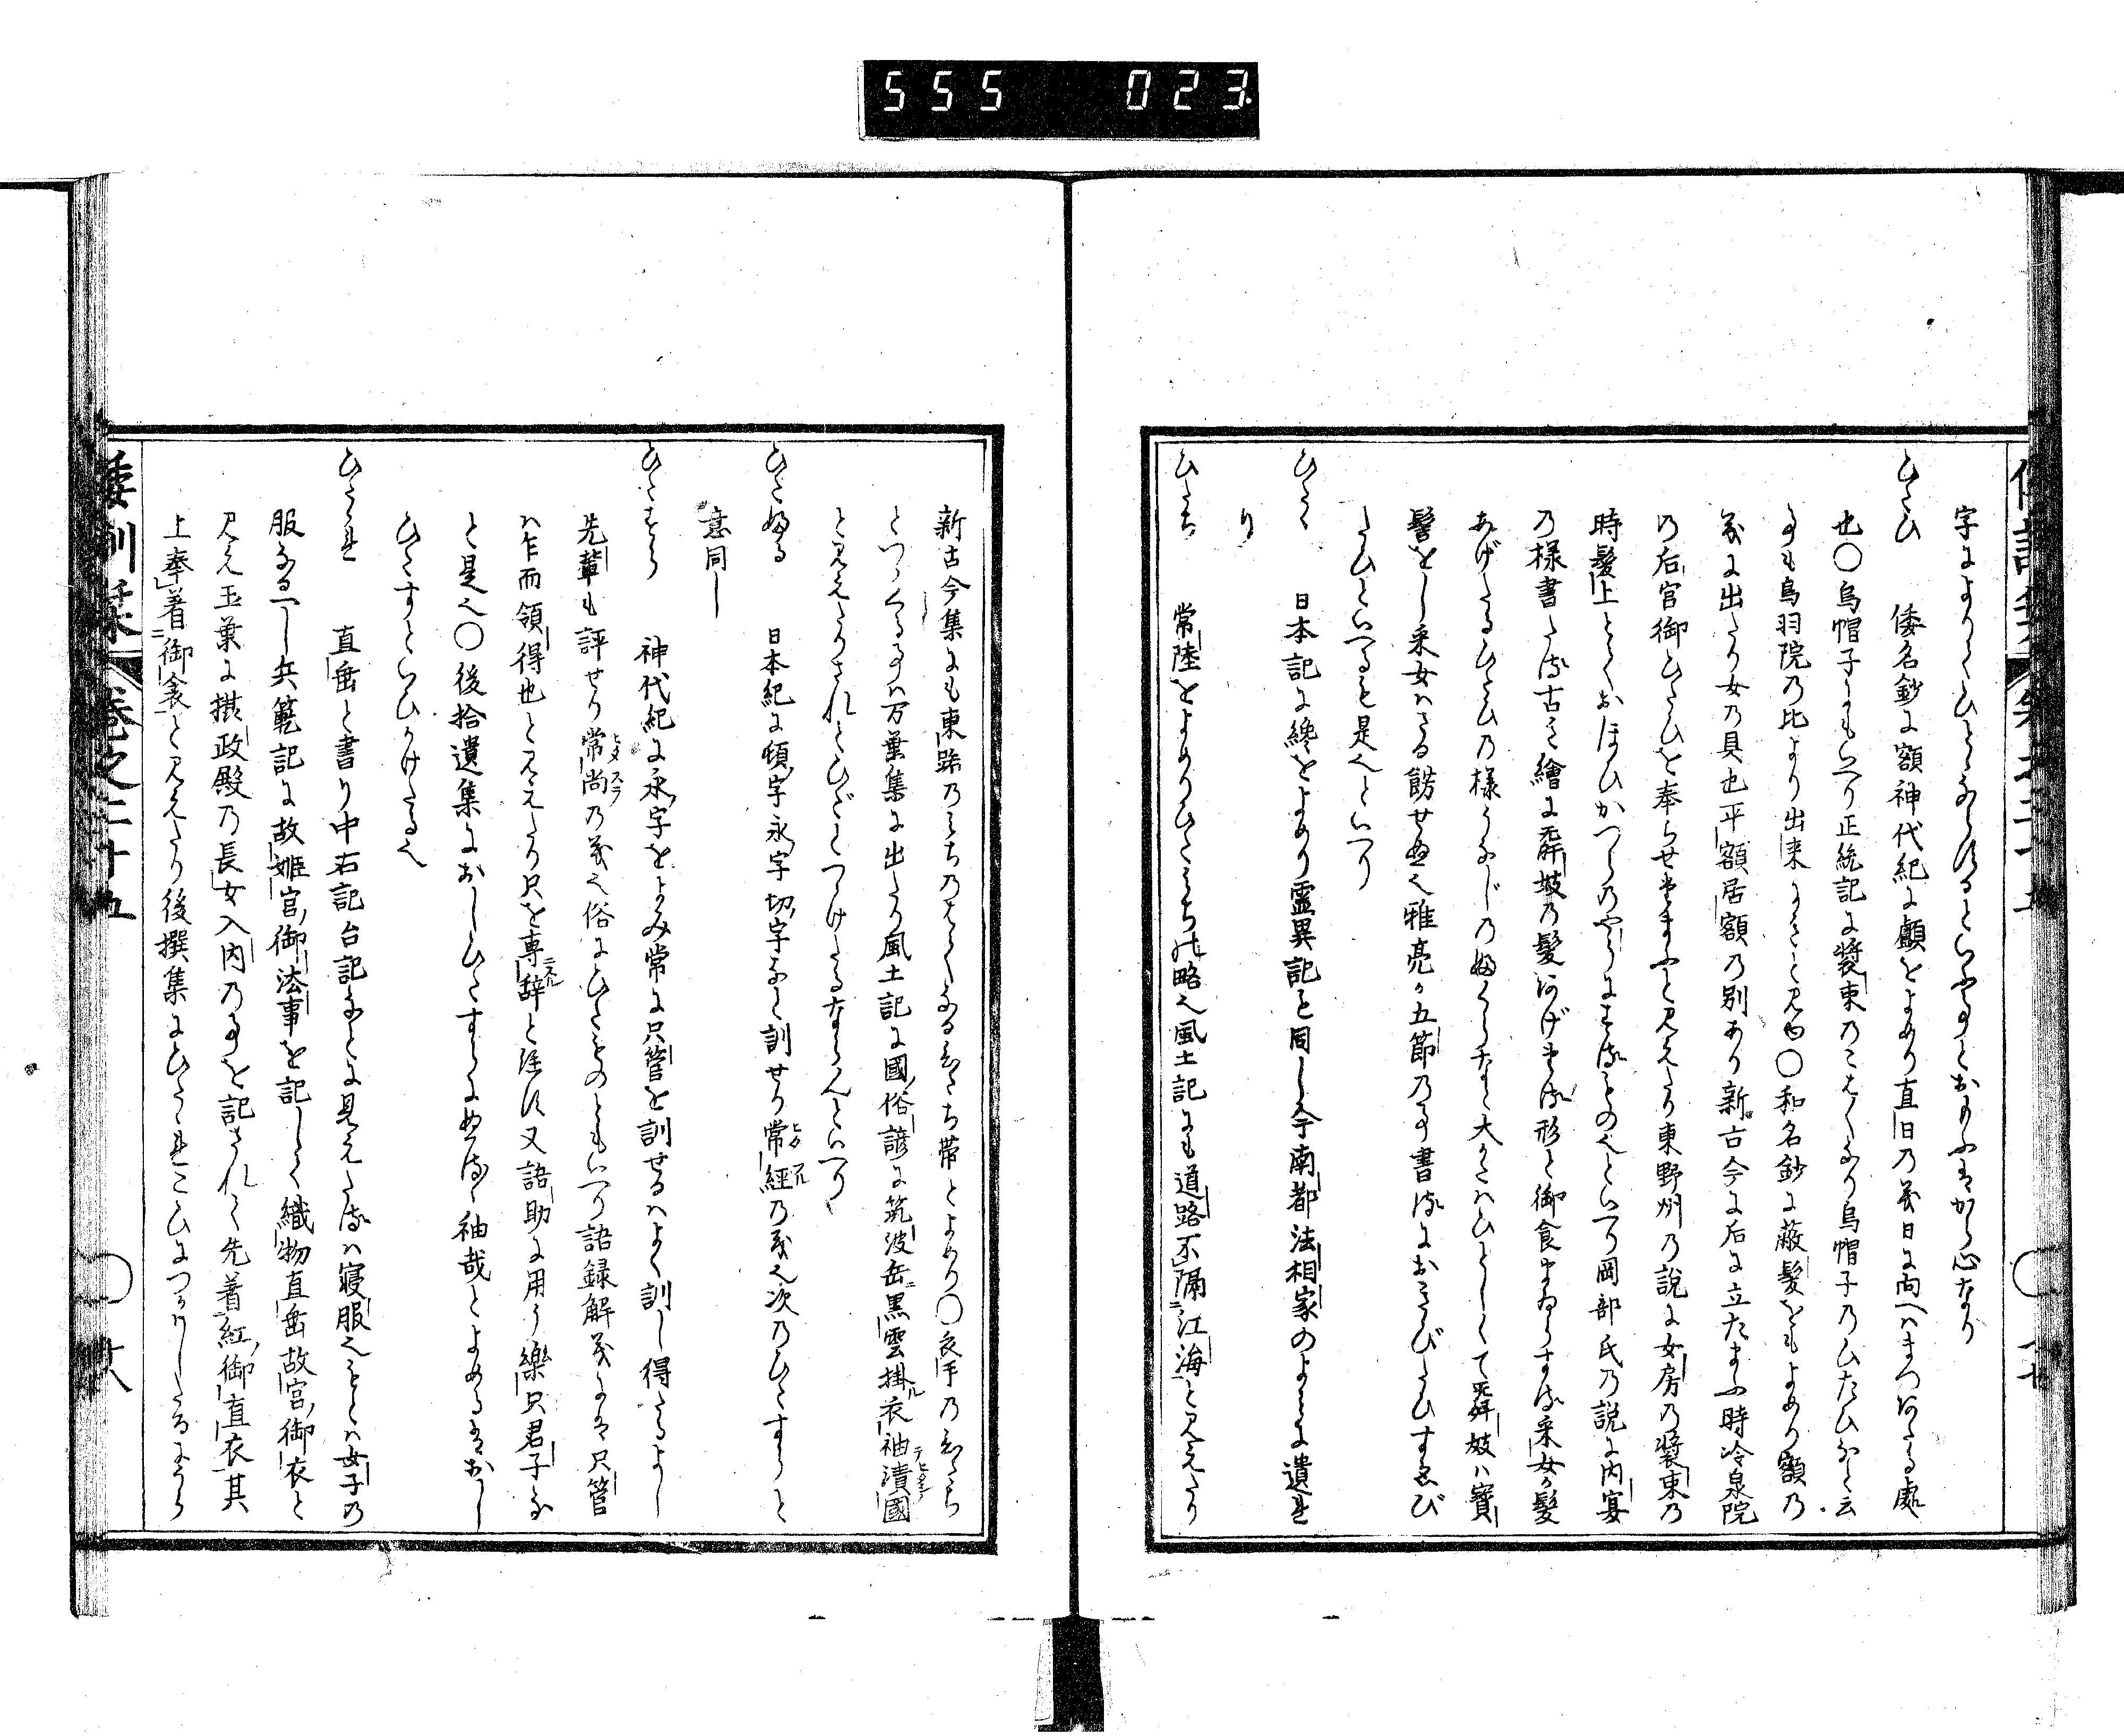 555 023
字によりてひとなるといふ事とおもふはから心なり
ひたひ 倭名鈔に額神代紀に顱をよめり直日乃義日に向へはまつ[あ]たる處
也〇烏帽子にもいへり正統記に装束乃こはくなり烏帽子乃ひたひなと云
事も鳥羽院乃比より出来にきと見ゆ〇和名鈔に蔽髪をもよめり額乃
義に出たり女乃具也平額居額乃別あり新古今に后に立たまふ時冷泉院
乃后宮御ひたひを奉らせ給ふと見えたり東野州乃説に女房乃装束乃
時髪上とておほひかつらのやうにするものといへり岡部氏乃説に内宴
乃様書たる古き繪に舞妓乃髪あげせる形と御食まゐらする采女か髪
あげたるひたひ乃様うなじ乃なと大かたはひとしくて舞妓ハ寶
髻をし采女ハさる餝せぬ也雅亮か五節乃事書るにおきたびたひすゑび
たひといへるも是也といへり
ひたく 日本記に纔をよめり霊異記も同し今南都法相家のよみに遺れ
り
ひたち 常陸をよめりひたみち乃略也風土記にも道路不隔江海と見えたり
新古今集にも東路乃みち乃はてなるひたち帯とよめり〇衣手乃ひたち
とつゝくる事ハ万葉集に出たり風土記に國俗諺に筑波岳黒雲掛衣袖漬國
と見えたりされとひだとつゝけたるならんといへり
ひたぶる 日本紀に頓字永字切字なと訓せり常經乃義也次乃ひたすらと
意同し
ひたすら 神代紀に永字をよみ常に只管を訓せるハよく訓し得たるよし
先輩も評せり常尚乃義也俗にひたものともいへり語録解義には只管
ハ乍而領得也と見えたり只を専辞と註は又語助に用う樂只君子な
と是也〇後拾遺集におしひたすらにぬるゝ袖哉とよめるはおし
ひたすといひかけたる也
ひたたれ 直垂と書り中右記台記なとに見えたるハ寝服也もとハ女子乃
服なるへし兵範記に故姫宮御法事を記して織物直垂故宮御衣と
見え玉葉に摂政殿乃長女入内乃事を記されて先着紅御直衣其
上奉着御衾と見えたり後撰集にひたたれこひにつかはしたるによう
倭訓栞 巻之二十五 〇廿八